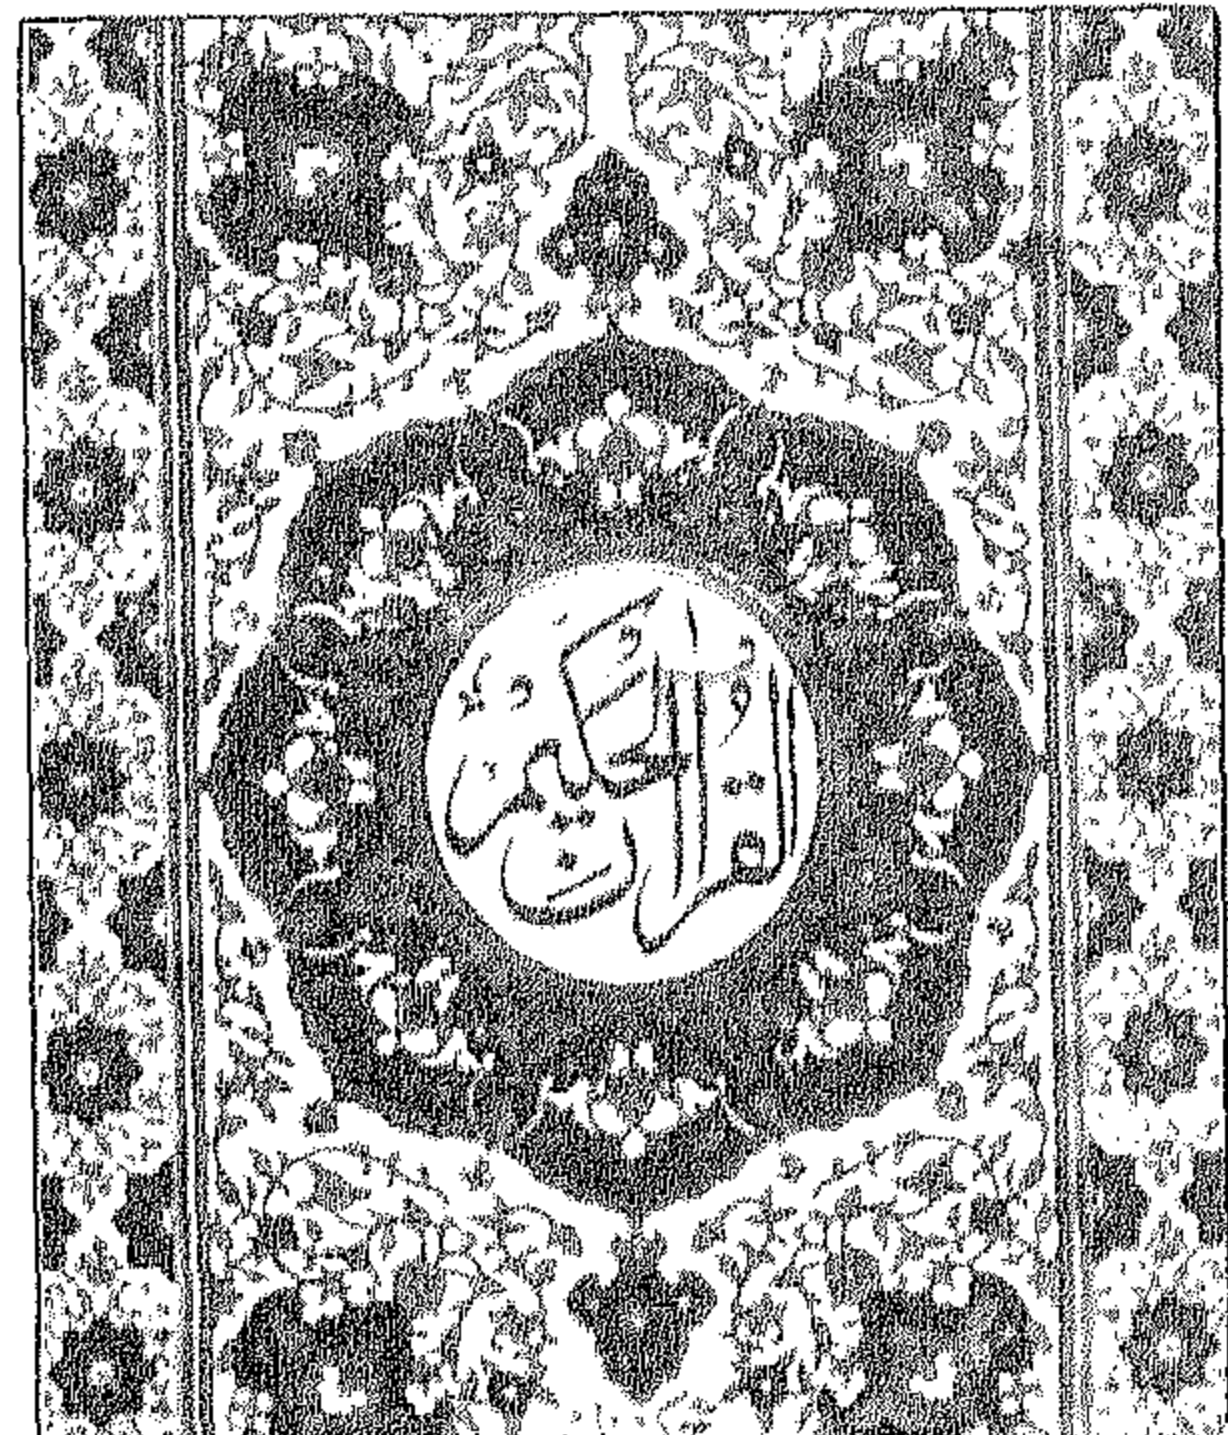 القرآن الحكيم